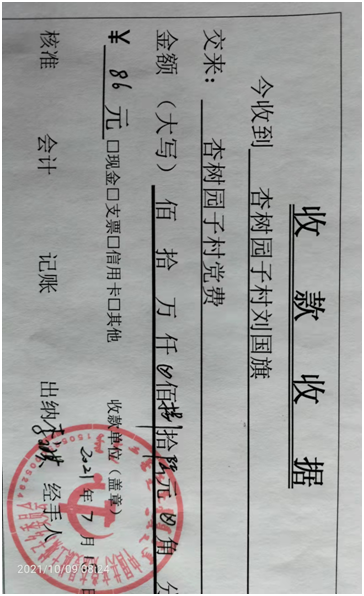 收款收据
今收到 杏树园子村刘国旗
交来: 杏树园子村党费
金额(大写) 佰 拾 万 仟 佰 拾 元 角 分
¥ 86元 □现金□支票□信用卡□其他 收款单位(盖章)
2021年7月 日
核准 会计 记账 出纳 经手人
2021/10/09 08:24